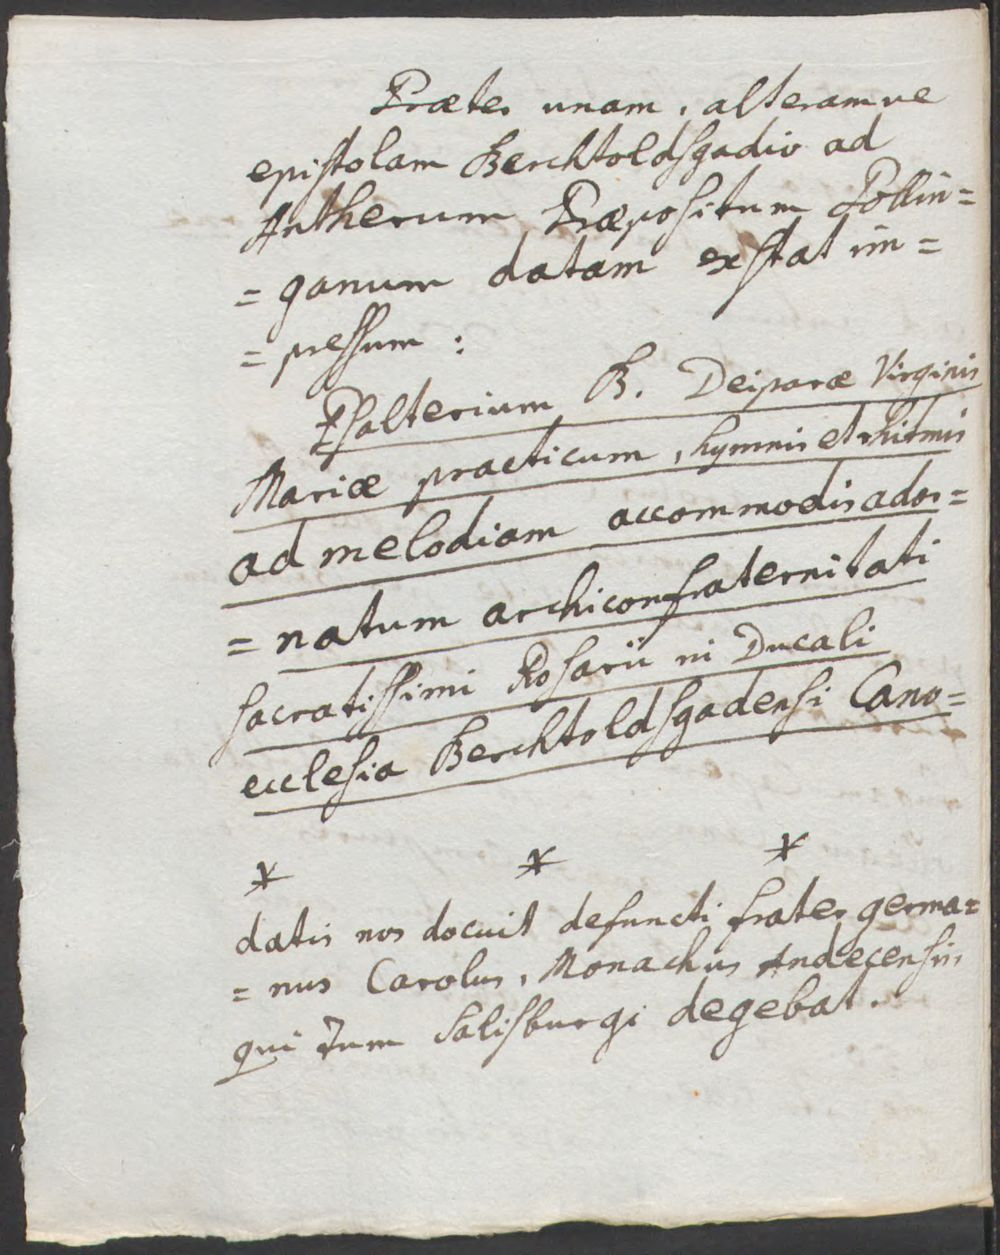 Præter unam, alteramve
epistolam Berchtoldsgadio ad
Antherum Præpositum Pollin=
= ganum datam exstat im=
= pressum :
Psalterium B. Deiparæ Virginis
Mariæ practicum, hymnis et rhitmis
ad melodiam accommodis ador=
= natum archiconfraternitati
sacratissimi Rosarii in Ducali
ecclesia Berchtoldsgadensi Cano=
* * *
datis nos docuit defuncti frater germa=
= nus Carolus, Monachus Andecensis,
qui tum Salisburgi degebat.